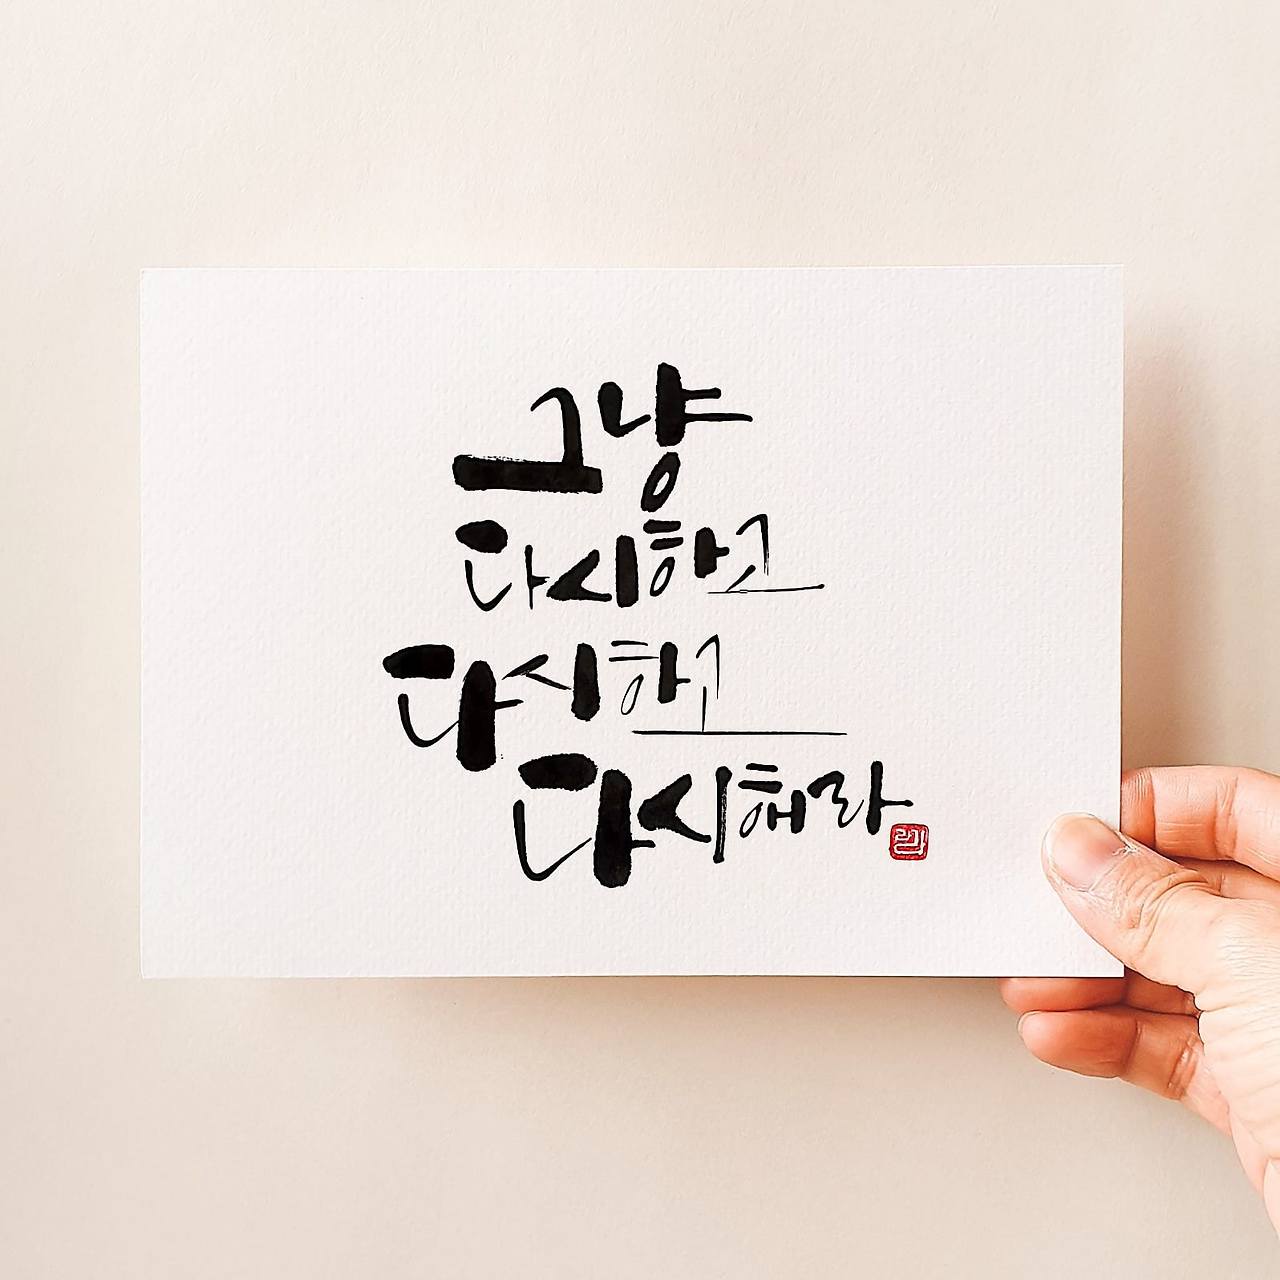 그냥
다시하고
다시하고
다시해라